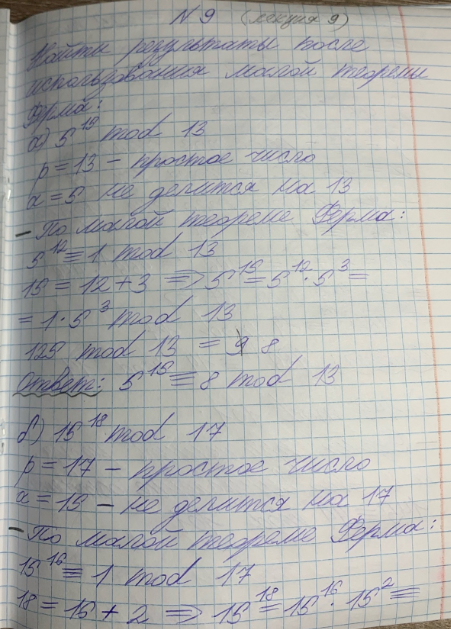 № 9 (лекция 9)
Найти результаты после
использования малой теоремы
Ферма:
а) 5¹⁵ mod 13
p = 13 - простое число
a = 5 не делится на 13
- По малой теореме Ферма:
5¹² ≡ 1 mod 13
15 = 12 + 3 => 5¹⁵ = 5¹² · 5³ =
= 1 · 5³ mod 13
125 mod 13 = 8
Ответ: 5¹⁵ ≡ 8 mod 13
б) 15¹⁸ mod 17
p = 17 - простое число
a = 15 - не делится на 17
- По малой теореме Ферма:
15¹⁶ ≡ 1 mod 17
18 = 16 + 2 => 15¹⁸ = 15¹⁶ · 15² ≡